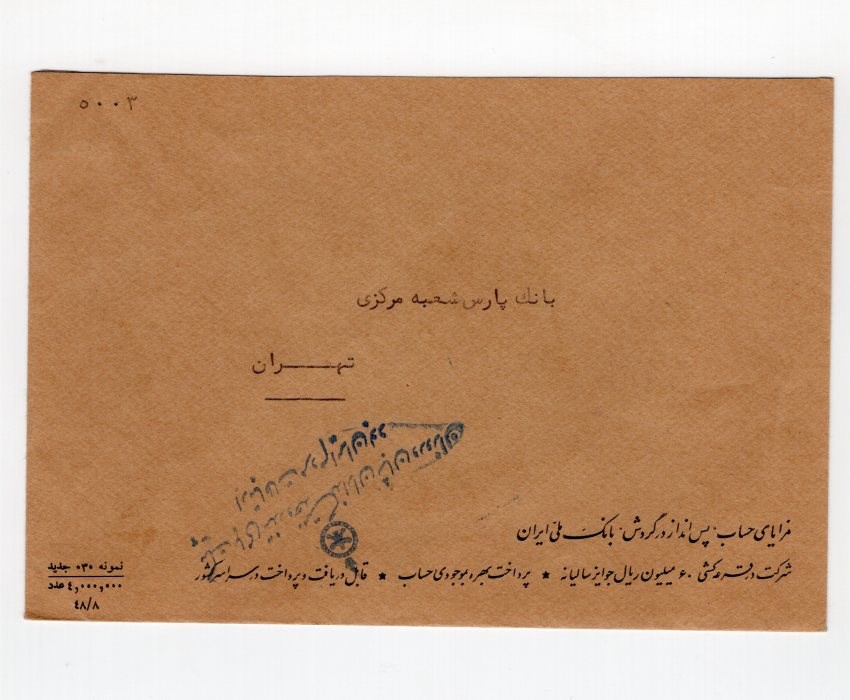 ۵۰۰۳
بانك پارس شعبه مرکزی
تهـــران
مزایای حساب "پس انداز در گردش" بانک ملّی ایران
شرکت در قرعه کشی ۶۰ میلیون ریال جوایز سالیانه ★ پرداخت بهره بموجودی حساب ★ قابل دریافت و پرداخت در سراسر کشور
نمونه ۰۳۰ جدید
۴,۰۰۰,۰۰۰ عدد
۴۸/۸